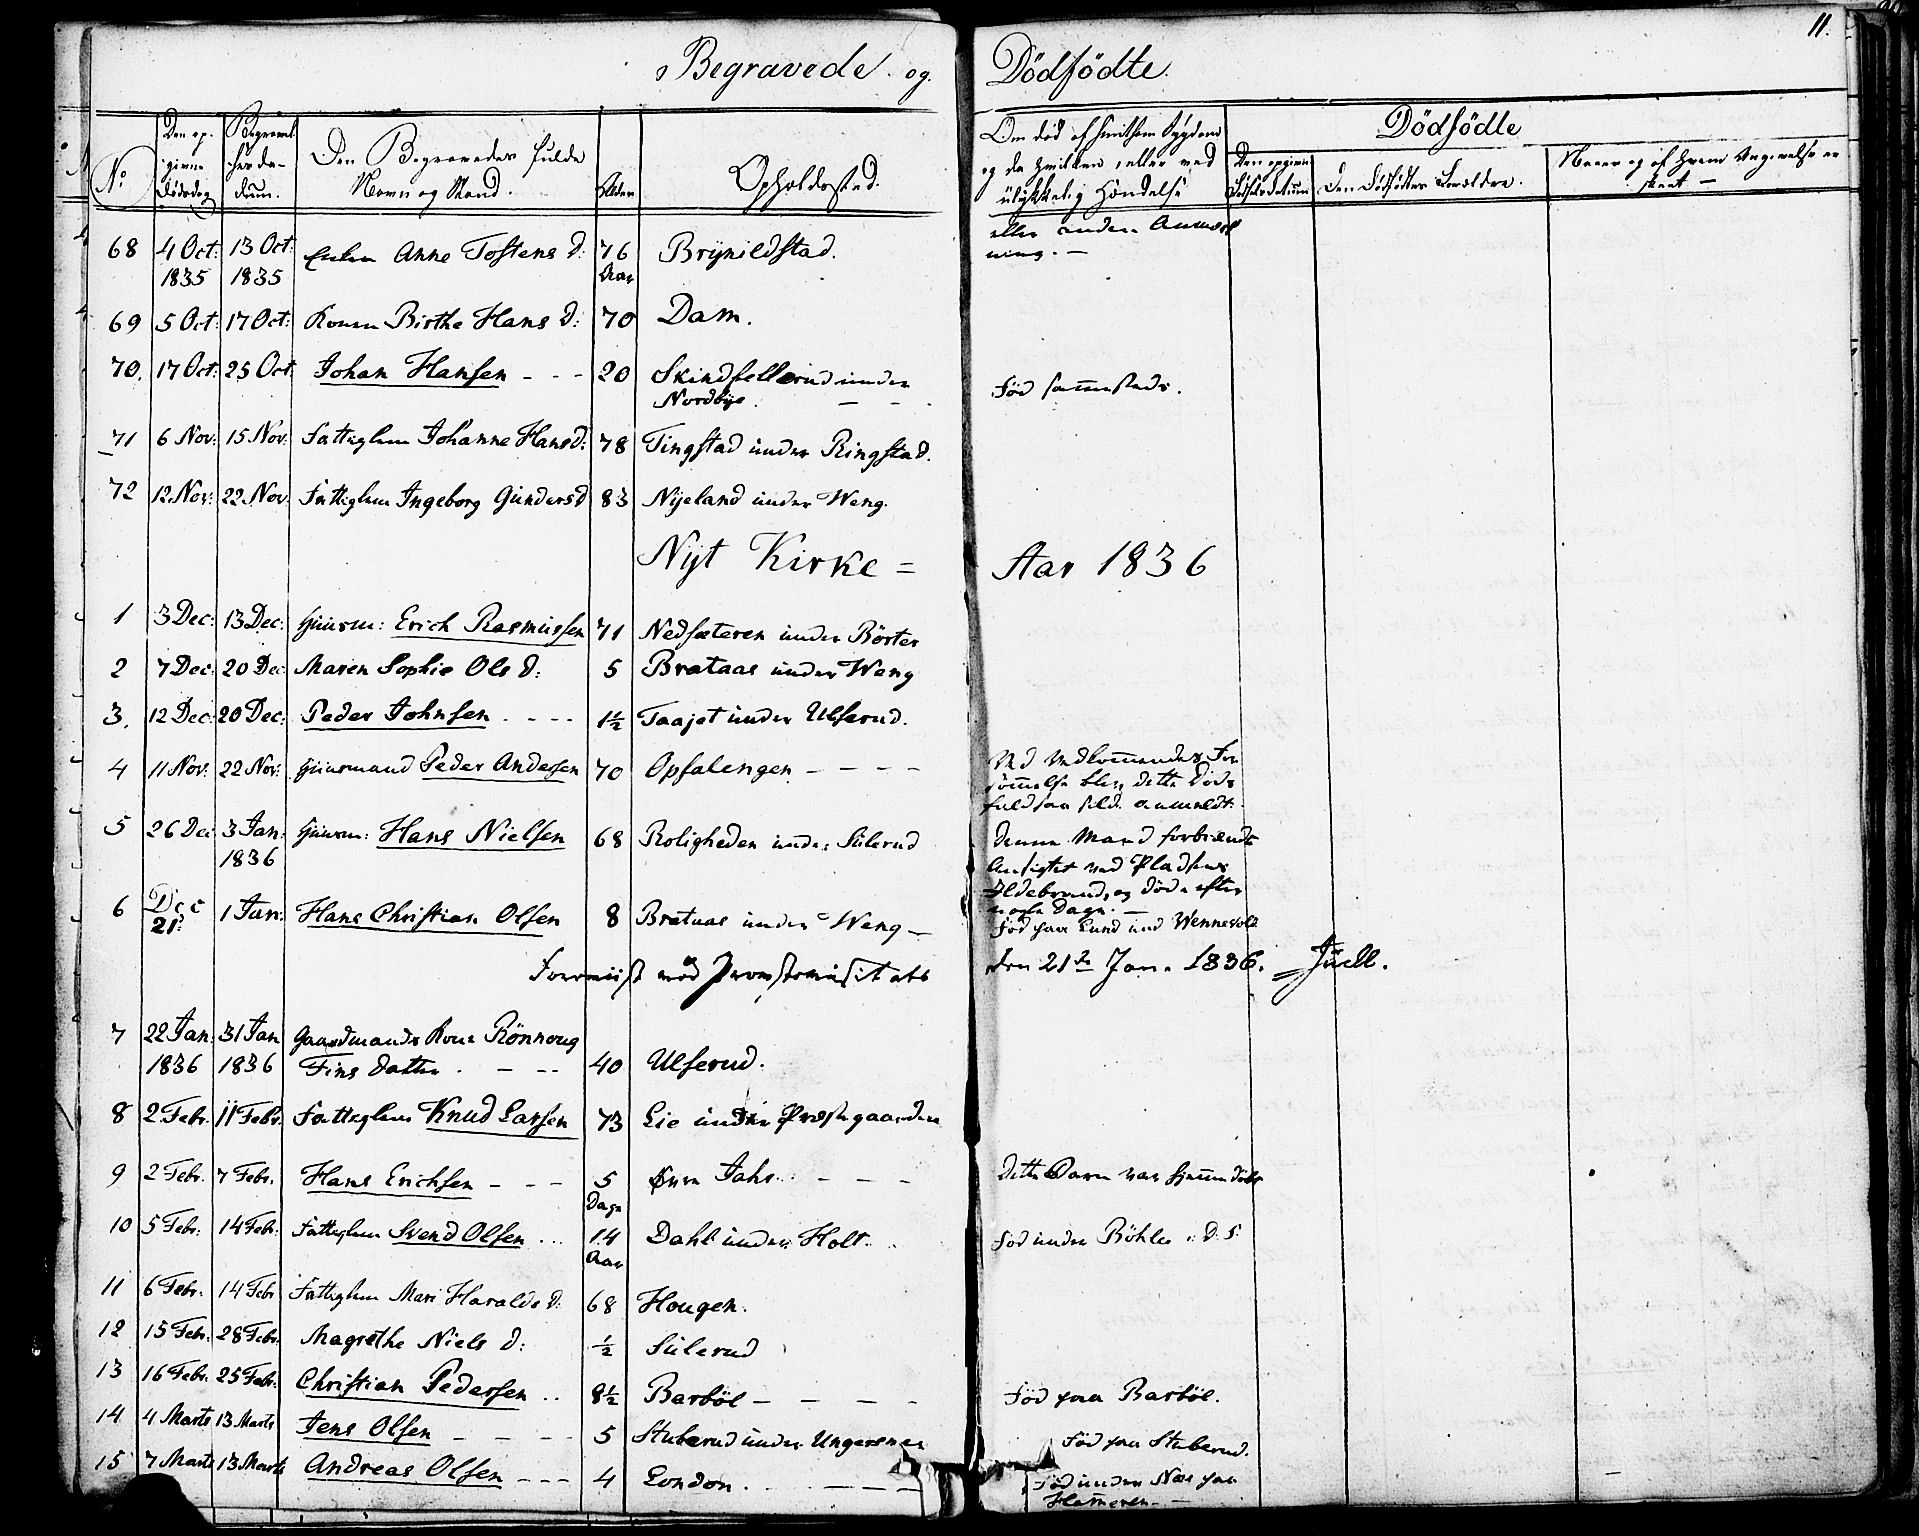 11.
Begravede og Dödfödte.
No
Den op-
givne
Dödsdag
Begravel
ses da-
tum.
Den Begravedes fulde
Navn og Stand.
Alder
Opholdssted.
Om död af smitsom Sygdom
og da hvilken, eller ved
ulykkelig Hændelse
eller anden Anmærk
ning. —
Dödfödte
Den opgivne
Födselsdatum
Den Dödfödtes Forældre.
Naar og af hvem Angivelse er
skeet —
68 4 Oct: 1835 13 Oct: 1835 Enken Anne Tostens D. 76 Aar Brynildstad.
69 5 Oct: 17 Oct: Konen Birthe Hans D: 70 Dam.
70. 17 Oct: 25 Oct: Johan Hansen - - - 20 Skindfellerud under Nordbye. Föd sammesteds.
71 6 Nov: 15 Nov: Fattiglem Johanne Hansd: 78 Tingstad under Ringstad.
72 12 Nov: 22 Nov: Fattiglem Ingeborg Gundersd 83 Nyeland under Weng.
Nyt Kirke = Aar 1836
1 3 Dec: 13 Dec: Huusm: Erich Rasmussen 71 Nedsæteren under Börter
2 7 Dec: 20 Dec: Maren Sophie Ols D: 5 Brataas under Weng
3. 12 Dec: 20 Dec: Peder Johnsen - - - - 1½ Taajet under Ulserud.
4 11 Nov: 22 Nov: Huusmand Peder Andersen 70 Opsalengen - - - - Ved Vedkommendes For
sömmelse blev dette Döds
fald saa sildt anmeldt.
5 26 Dec 3 Jan: 1836 Huusm: Hans Nielsen 68 Roligheden under Sulerud Denne Mand forbrændte
Ansigtet ved Pladsens
Ildebrand, og döde efter
nogle Dage. —
6 Dec 21: 1 Jan: Hans Christian Olsen 8 Brataas under Weng — Föd paa Lund und Wennevold
den 21de Jan. 1836. Juell.
7 22 Jan: 1836 31 Jan 1836 Gaardmands Kone Rönnoug
Fins Datter. - - - 40 Ulserud.
8 2 Febr. 11 Febr. Fattiglem Knud Larsen 73 Lie under Præstegaarden
9 2 Febr. 7 Febr. Hans Erichsen - - - 5 Dage Övre Jahr. - - - Dette Barn var hjemmedöbt
10 5 Febr: 14 Febr: Fattiglem Svend Olsen ... 14 Aar Dahl under Holt. Föd under Böhler i D. S.
11 6 Febr. 14 Febr Fattiglem Mari Haralds D: 68 Hougen.
12 15 Febr. 28 Febr. Magrethe Niels D: ½ Sulerud
13 16 Febr. 25 Febr. Christian Pedersen .. 8½ Barböl - - - - Föd paa Barböl.
14 4 Marts 13 Marts Jens Olsen - - - - 5 Stuberud under Ungersnes Föd paa Stuberud.
15 7 Marts 13 Marts Andreas Olsen - - - 4 London. - - - Föd under Næs paa
Hammeren. —